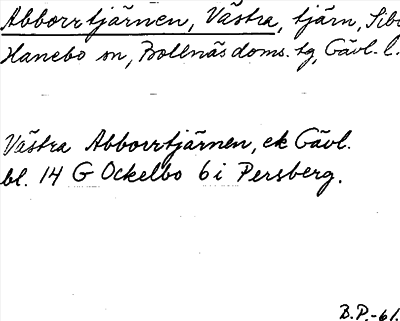 Abborrtjärnen, Västra, tjärn,
Hanebo sn, Bollnäs doms. tg, Gävl. l.
Västra Abborrtjärnen, ek Gävl.
bl. 14 G Ockelbo 6 i Persberg.
B.P.-61.